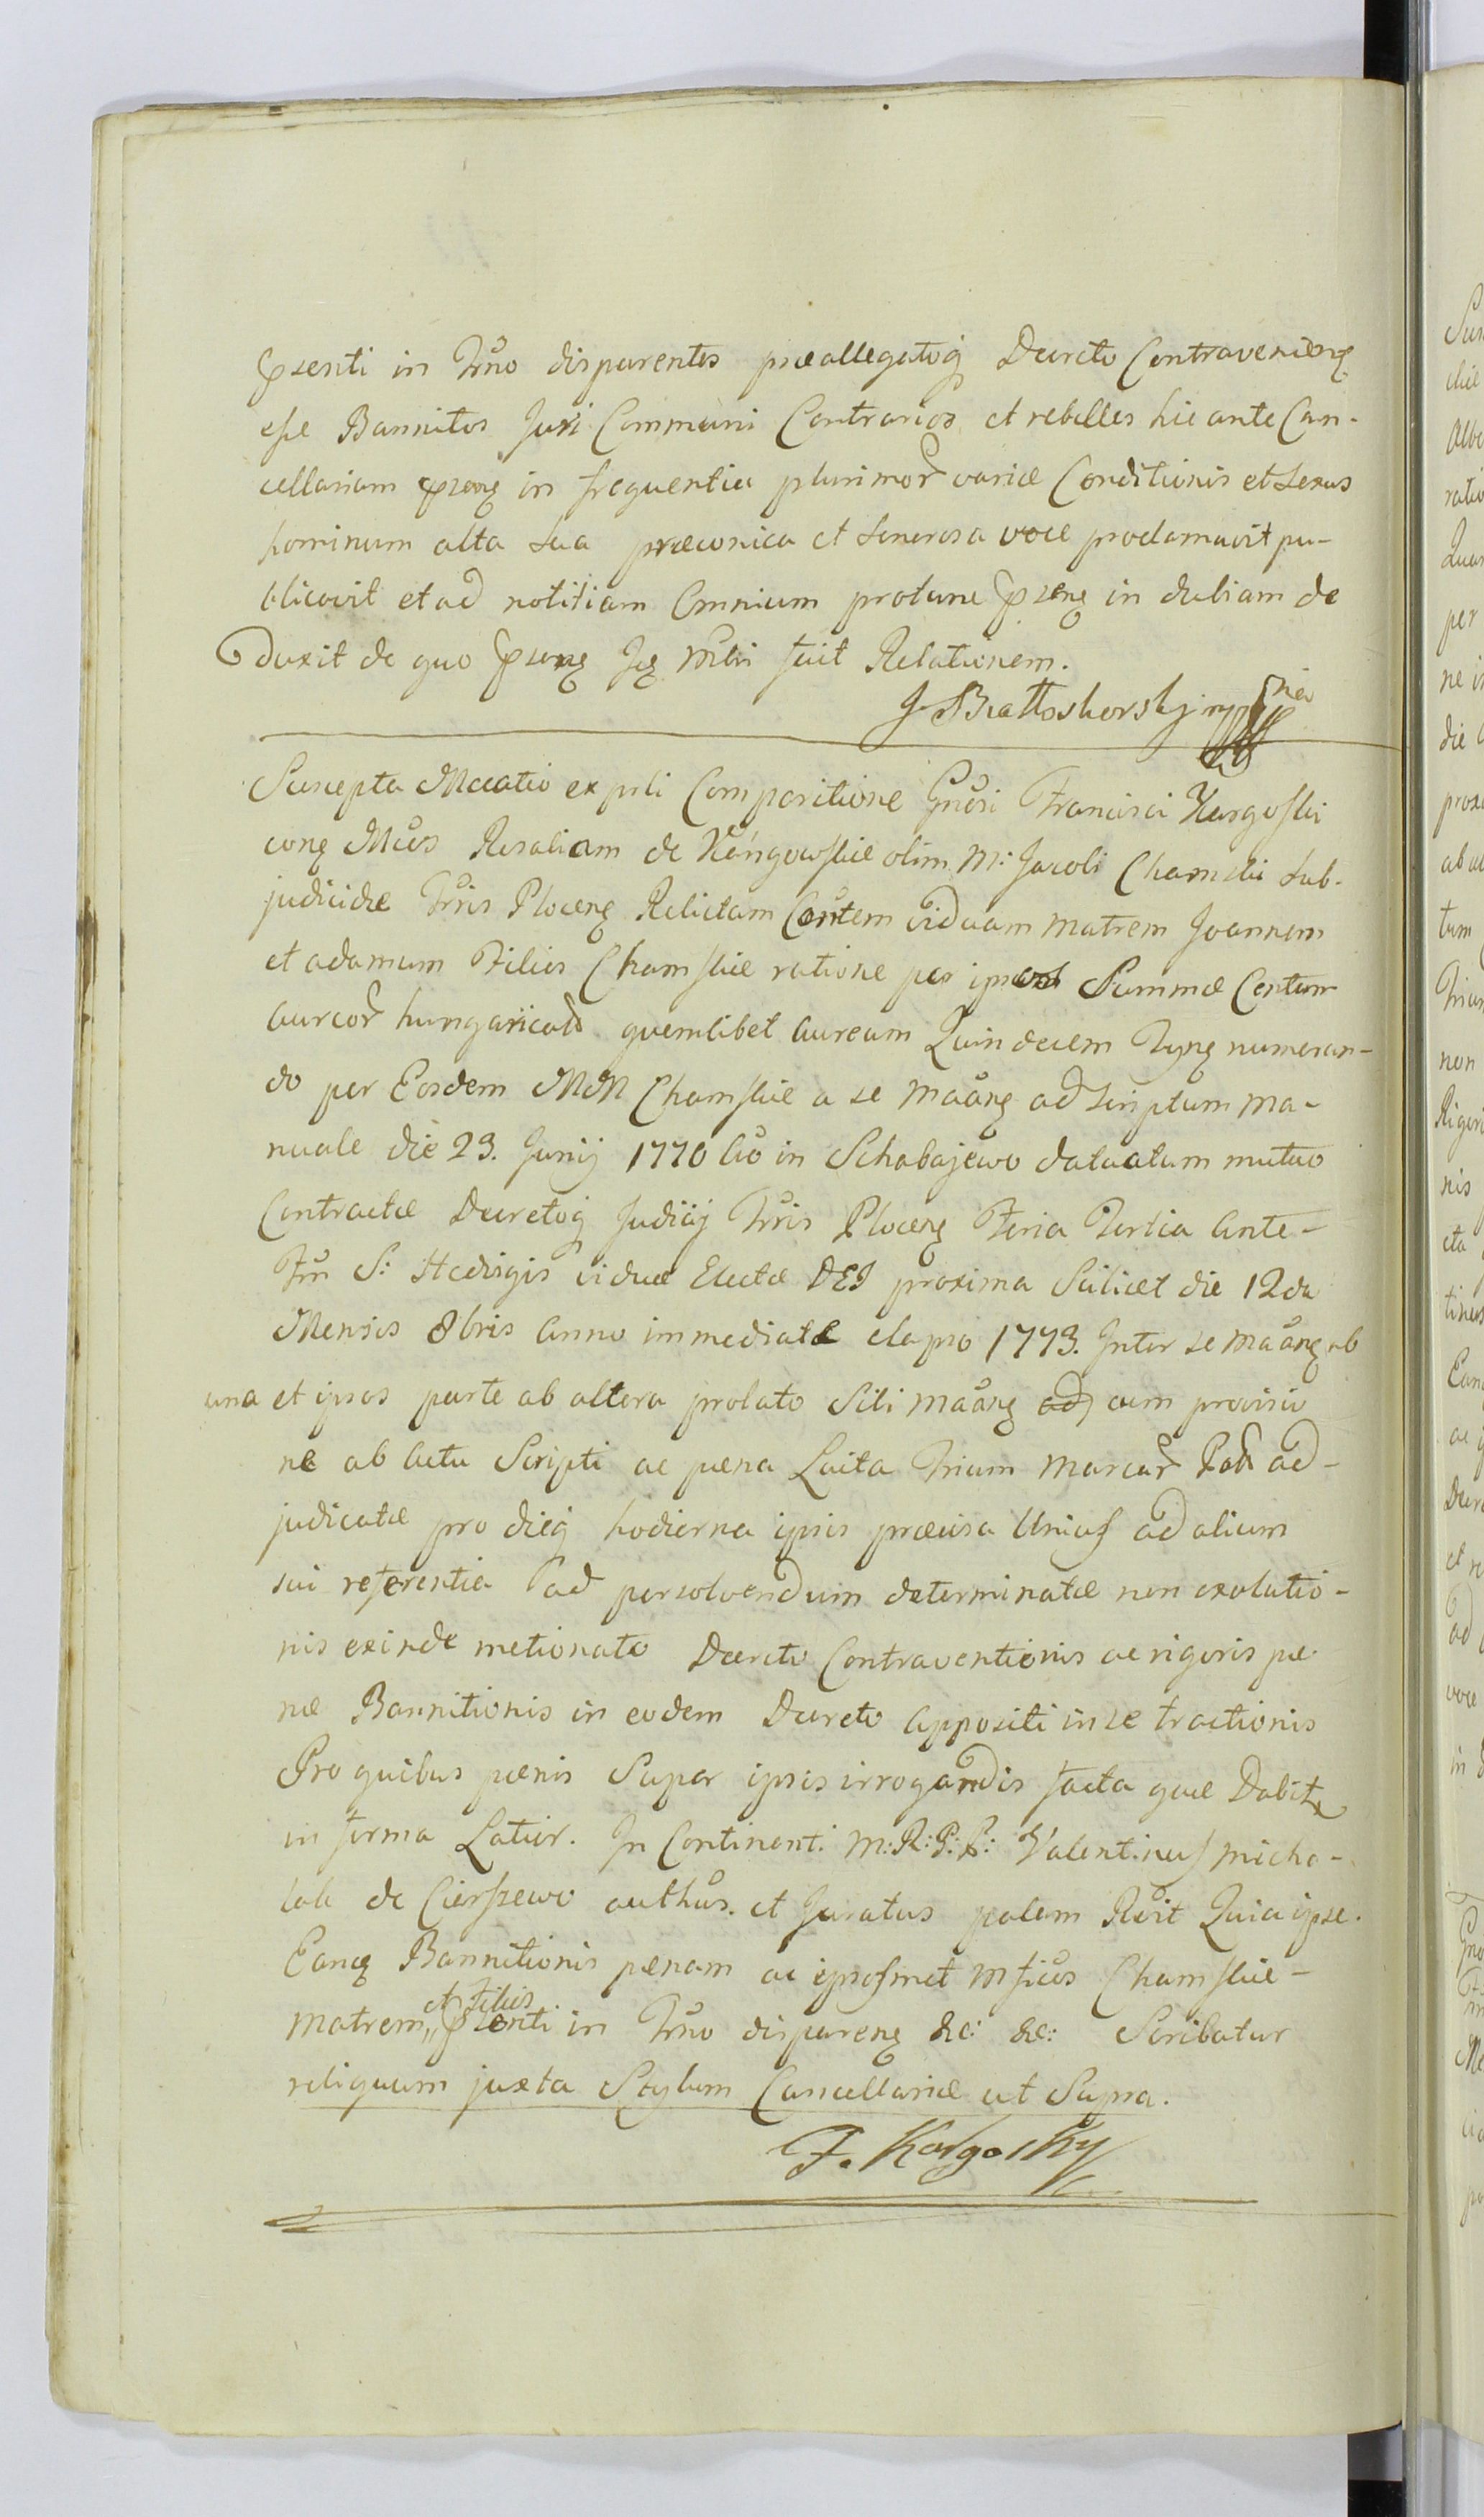 Pszenti in Trno disparentes præallegatoq Decreto Contraveniens
esse Bannitos Juri Communi Contrarios et rebelles hic ante Can-
cellariam Pszeng in frequentia plurimor variæ Conditionis et Sexus
hominum alta sua præconica et Sonorosa voce proclamavit pu-
blicavit et ad notitiam Omnium protunc Pszeng in dubiam de
duxit de quo Pszeng Jq Mtri fecit Relationem.
J Brattoshorskj mp
Suscepta ex prli Comparitione Gnosi Francisci Kargoski
cong Mcos Rosaliam de Kęngowskie olim M: Jacobi Chamski Sub-
judicidæ Trris Ploceng Relictam Csortem viduam matrem Joannem
et adamum Filios Chamskie ratione per ipsos Summæ Centum
aureor hungarical quemlibet aureum Quindecim Tyng numeran-
do per Eosdem MM Chamskie a se maang ad scriptum ma-
nuale die 23. Junij 1770 Ao in Schabajewo datuatum mutuo
Contractæ Decretoq Judicij Trris Ploceng Feria Tertia Ante-
Fm S: Hedvigis viduæ Electæ DEI proxima Scilicet die 12da
Mensis 8bris Anno immediatE elapso 1773. Inter se maang ab
una et ipsos parte ab altera prolato Sibi maang ad cum provisio
ne ab Actu Scripti ac pæna Lucta Trium Marcar Pod ad-
judicatæ pro dieq hodierna ipsis præcisa Unius ad alium
sui referentia ad persolvendum determinatæ non exolutio-
nis exinde metionato Decreto Contraventionis ac rigoris pæ
næ Bannitionis in eodem Decreto Appositi in se tractionis
Pro quibus pænis Super ipsis irrogandis facta quæ Dabit
in forma Latior. In Continenti M:R:P:P: Valentinus Micha-
lak de Cierszewo authus. et Juratus palam Rvit Quia ipse.
Eanq Bannitionis pænam ac ipsosmet Mficos Chamskie-
matrem,, et Filios Pszenti in Trno dispareng &c: &c: Scribatur
reliquum juxta Stylum Cancellariæ ut Supra.
F. Kargosky